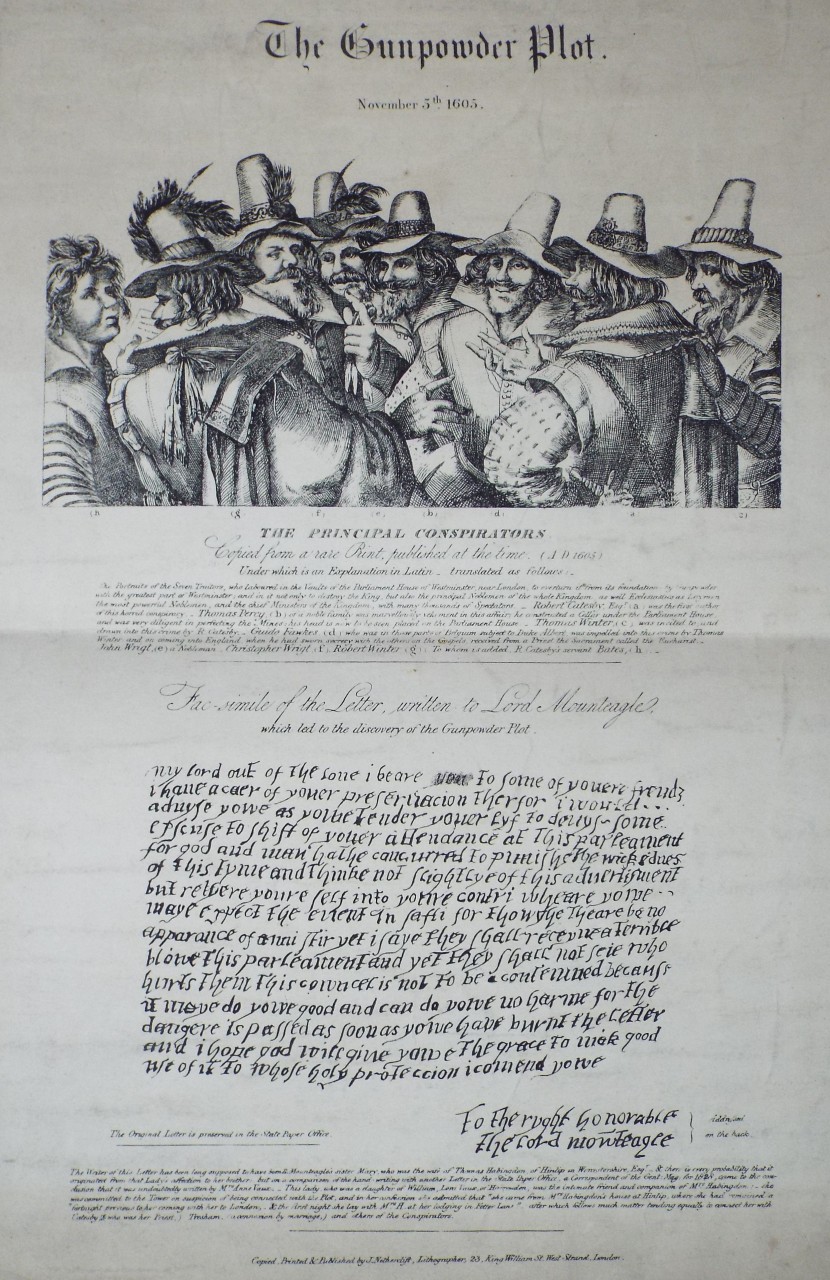 The Gunpowder Plot.
November 5th 1605.
(h (g (f) (e) (b) d) a c)
THE PRINCIPAL CONSPIRATORS
Copied from a rare Print, published at the time. (A D 1605)
Under which is an Explanation in Latin _ translated as follows :_
The Portraits of the Seven Traitors, who laboured in the Vaults of the Parliament House of Westminster near London, to overturn it from its foundation by Gunpowder
with the greatest part of Westminster; and in it not only to destroy the King, but also the principal Noblemen of the whole Kingdom, as well Ecclesiastics as Laymen
the most powerful Noblemen, and the chief Ministers of the Kingdom, with many thousands of Spectators. _ Robert Catesby, Esqr (a) was the first author
of this horrid conspiracy _ Thomas Percy (b) of a noble family was marvellously vehement in this affair; he constructed a Cellar under the Parliament House
and was very diligent in perfecting the Mines; his head is now to be seen placed on the Parliament House _ Thomas Winter (c) was invited to and
drawn into this crime by R. Catesby _ Guido Fawkes (d) who was in those parts of Belgium subject to Duke Albert was impelled into this crime by Thomas
Winter and on coming into England, when he had sworn secrecy with the others on the Gospels, received from a Priest the Sacrament called the Eucharist _
John Wrigt (e) a Nobleman. Christopher Wrigt (f) Robert Winter (g). To whom is added, R. Catesby's servant Bates, (h _
Fac-simile of the Letter, written to Lord Mounteagle,
which led to the discovery of the Gunpowder Plot.
my lord out of the loue i beare to some of youere frendz
i haue a caer of youer preseruacion therfor i would...
aduyse yowe as yowe tender youer lyf to deuys some
excuse to shift of youer attendance at this parleament
for god and man hathe concurred to punishe the wickednes
of this tyme and thinke not slightlye of this advertisment
but retyere youre self into youre contri wheare yowe
maye expect the event in safti for thowghe theare be no
apparance of anni stir yet i saye they shall receyue a terrible
blowe this parleament and yet they shall not seie who
hurts them this cowncel is not to be contemned because
it maye do yowe good and can do yowe no harme for the
dangere is passed as soon as yowe have burnt the letter
and i hope god will give yowe the grace to mak good
use of it to whose holy proteccion i comend yowe
To the ryght honorable
the lord mowteagle
Address'd
on the back.
The Original Letter is preserved in the State Paper Office.
The Writer of this Letter has been long supposed to have been L. Mounteagle's sister Mary, who was the wife of Thomas Habingdon of Hinlip in Worcestershire, Esqr _ & there is every probability that it
originated from that Lady's affection to her brother; but on a comparison of the hand-writing with another Letter in the State Paper Office, a Correspondent of the Gent. Mag. for 1828, came to the con-
clusion that it was undoubtedly written by Mrs Anne Vaux _ This lady, who was a daughter of William, Lord Vaux, of Harrowden, was the intimate friend and companion of Mrs Habingdon : she
was committed to the Tower on suspicion of being connected with the Plot, and in her confession she admitted that "she came from Mrs Habingdon's house at Hinlip, where she had remained a
"fortnight previous to her coming with her to London, & the first night she lay with Mrs H. at her lodging in Fetter Lane" _ after which follows much matter tending equally to connect her with
Catesby (& who was her Priest,) Tresham, (a connexion by marriage,) and others of the Conspirators.
Copied, Printed & Published by J. Netherclift, Lithographer, 23, King William St. West-Strand, London.